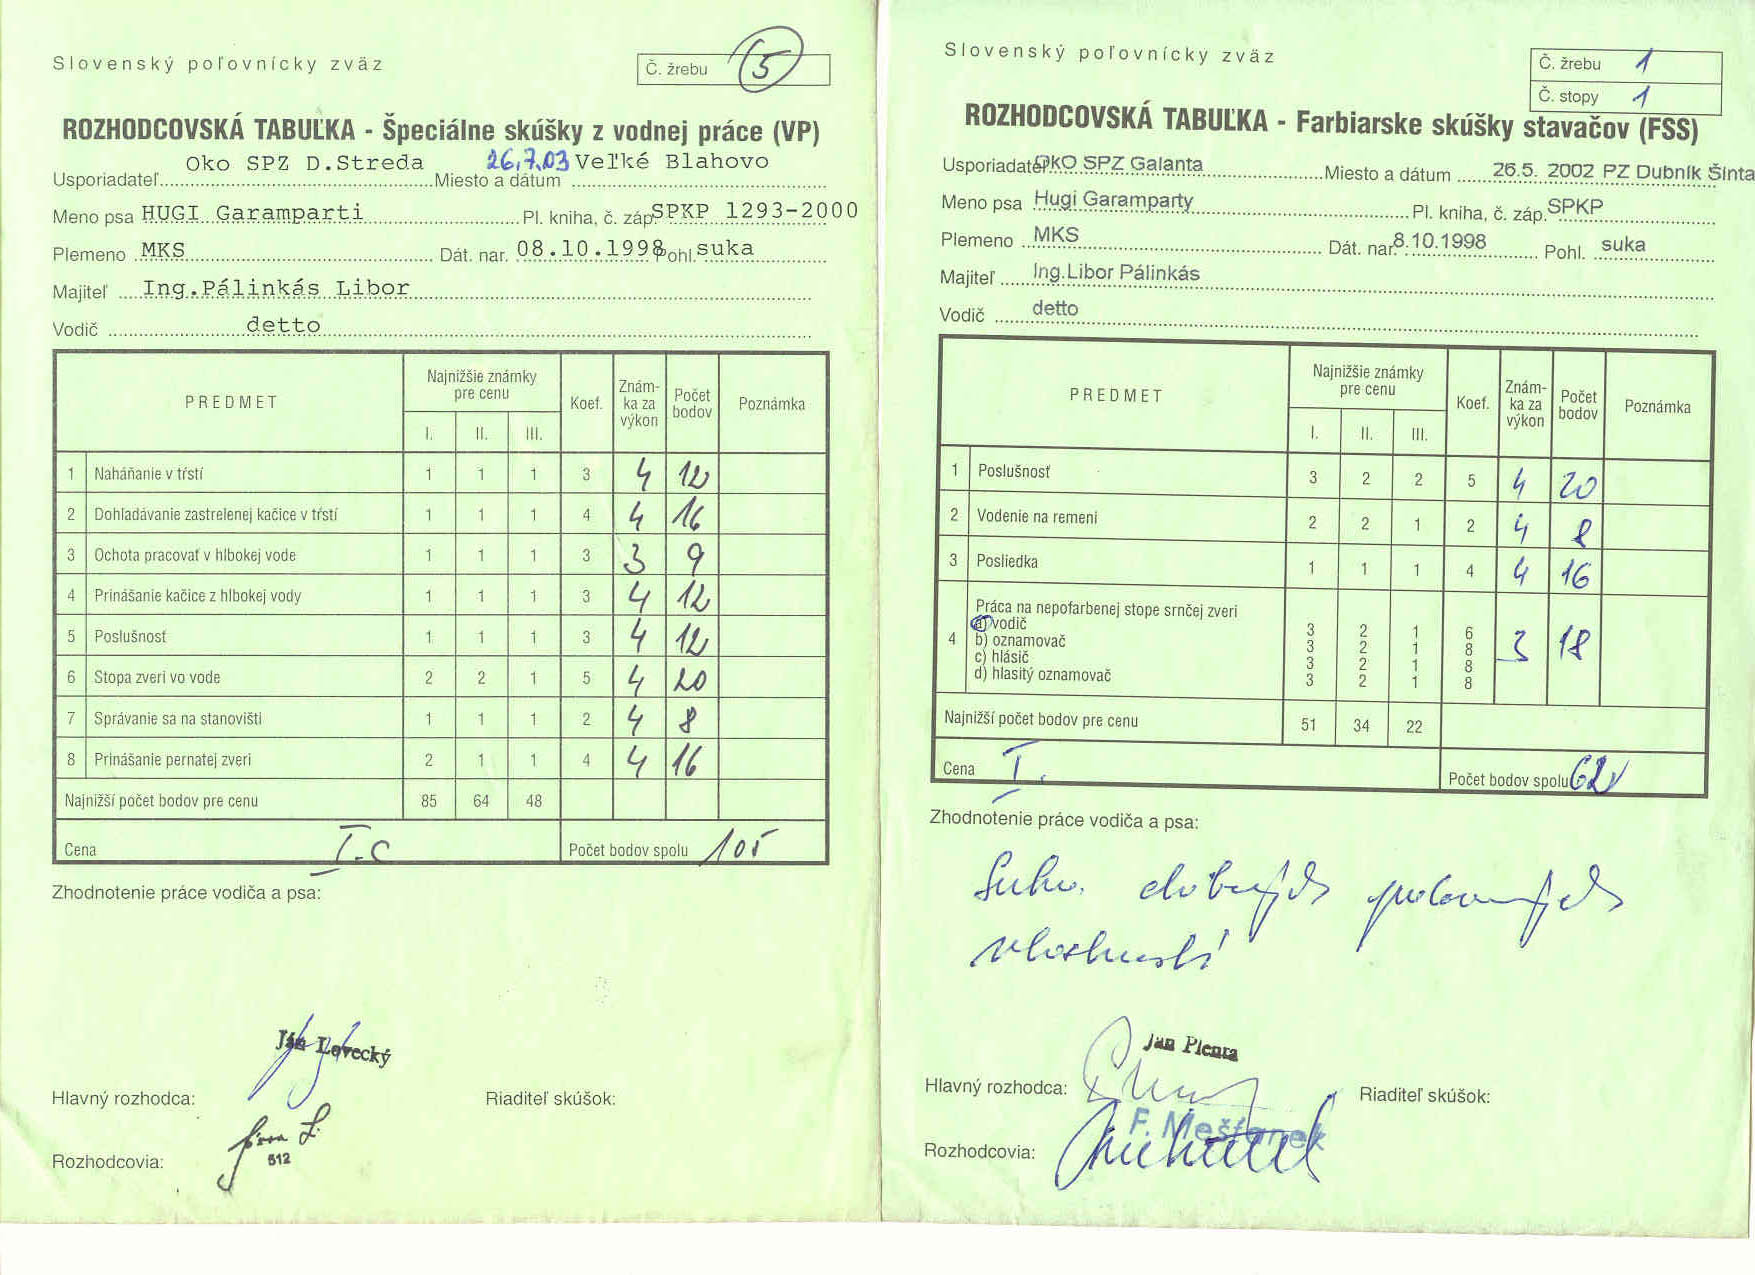 Slovenský poľovnícky zväz
Č. žrebu 5
ROZHODCOVSKÁ TABUĽKA - Špeciálne skúšky z vodnej práce (VP)
Usporiadateľ Oko SPZ D.Streda Miesto a dátum 26.7.03 Veľké Blahovo
Meno psa HUGI Garamparti Pl. kniha, č. záp. SPKP 1293-2000
Plemeno MKS Dát. nar. 08.10.1998 Pohl suka
Majiteľ Ing.Pálinkás Libor
Vodič detto
PREDMET Najnižšie známky pre cenu I. II. III. Koef. Znám-ka za výkon Počet bodov Poznámka
1 Naháňanie v tŕstí 1 1 1 3 4 12
2 Dohľadávanie zastrelenej kačice v tŕstí 1 1 1 4 4 16
3 Ochota pracovať v hlbokej vode 1 1 1 3 3 9
4 Prinášanie kačice z hlbokej vody 1 1 1 3 4 12
5 Poslušnosť 1 1 1 3 4 12
6 Stopa zveri vo vode 2 2 1 5 4 20
7 Správanie sa na stanovišti 1 1 1 2 4 8
8 Prinášanie pernatej zveri 2 1 1 4 4 16
Najnižší počet bodov pre cenu 85 64 48
Cena I.c Počet bodov spolu 105
Zhodnotenie práce vodiča a psa:
Ján Lovecký
Hlavný rozhodca: Riaditeľ skúšok:
Rozhodcovia: 512
Slovenský poľovnícky zväz
Č. žrebu 1
Č. stopy 1
ROZHODCOVSKÁ TABUĽKA - Farbiarske skúšky stavačov (FSS)
Usporiadateľ OkO SPZ Galanta Miesto a dátum 26.5. 2002 PZ Dubník Šinta
Meno psa Hugi Garamparty Pl. kniha, č. záp. SPKP
Plemeno MKS Dát. nar. 8.10.1998 Pohl. suka
Majiteľ Ing.Libor Pálinkás
Vodič detto
PREDMET Najnižšie známky pre cenu I. II. III. Koef. Znám-ka za výkon Počet bodov Poznámka
1 Poslušnosť 3 2 2 5 4 20
2 Vodenie na remeni 2 2 1 2 4 8
3 Posliedka 1 1 1 4 4 16
4 Práca na nepofarbenej stope srnčej zveri
a) vodič 3 2 1 6 3 18
b) oznamovač 3 2 1 8
c) hlásič 3 2 1 8
d) hlasitý oznamovač 3 2 1 8
Najnižší počet bodov pre cenu 51 34 22
Cena I. Počet bodov spolu 62
Zhodnotenie práce vodiča a psa:
Suka dobrých poľovných
vlastností
Ján Plenta
Hlavný rozhodca: Riaditeľ skúšok:
F. Mešťanek
Rozhodcovia: